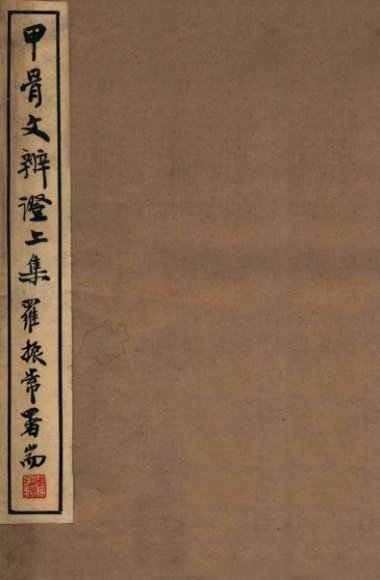 甲骨文辨證上集 羅振常署耑